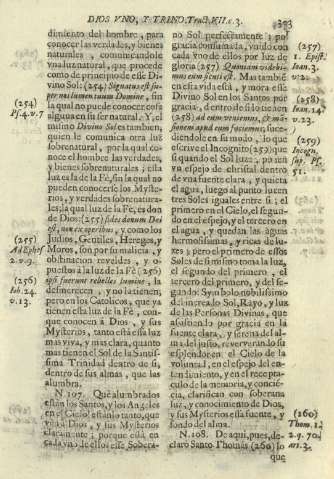 DIOS VNO, Y TRINO. Tract. XII. c. 3. 393
dimiento del hombre, para
conocer las verdades, y bienes
naturales, comunicandole
vna luz natural, que procede
como de principio de esse Di-
vino Sol: (254) Signatum est su-
per nos lumen vultus tui Domine, sin
la qual no puede conocer cosa
alguna en su ser natural. Y, el
mismo Divino Sol es tambien,
quien le comunica otra luz
sobrenatural, por la qual cono-
ce el hombre las verdades,
y bienes sobrenaturales; esta
luz es la de la Fè, sin la qual no
pueden conocerse los Myste-
rios, y verdades sobrenatura-
les; la qual luz de la Fè, es don
de Dios: (255) fides donum Dei
est, non ex operibus, y como los
Judios, Gentiles, Hereges, y
Moros, son por su malicia, y
obstinacion rebeldes, y o-
puestos à la luz de la Fè; (256)
ipsi fuerunt rebelles lumine, la
desmerecen, y no la tienen;
pero en los Catholicos, que ya
tienen esta luz de la Fè, con-
que conocen à Dios, y sus
Mysterios, tanto està esta luz
mas viva, y mas clara, quanto
mas tienen el Sol de la Santis-
sima Trinidad dentro de sì,
dentro de sus almas, que las
alumbra.
N. 107. Què alumbrados
estàn los Santos, y los Angeles
en el Cielo! estànlo tanto, que
vèn à Dios, y sus Mysterios
claramente; porque està en
cada vno de ellos esse Sobera-
(254)
Ps. 4. v. 7
(255)
Ad Ephes.
2. v. 9.
(256)
Iob. 24.
v. 13.
no Sol perfectissimamente; por
gracia consumada, vnido con
cada vno de ellos por luz de
gloria: (257) Quoniam videbi-
mus eum sicuti est. Mas tambien
en esta vida està, y mora esse
Divino Sol en los Santos por
gracia, dentro de sì lo tienen
(258) ad eum veniemus, & man-
sionem apud eum faciemus; suce-
diendo en su modo, lo que
escrive el Incognito (259) que
si quando el Sol luze, ponen
vn espejo de christal dentro
de vna fuente clara, y quieta
el agua, luego al punto lucen
tres Soles iguales entre sì; el
primero en el Cielo, el segun-
do en el espejo, y el tercero en
el agua, y quedan las aguas
hermosissimas, y ricas de lu-
zes; pero el primero de essos
Soles de sì mismo toma la luz,
el segundo del primero, el
tercero del primero, y del se-
gundo: Symbolo nobilissimo
del increado Sol, Rayo, y luz
de las Personas Divinas, que
assistiendo por gracia en la
fuente clara, y serena del al-
ma del justo, reververando su
esplendor en el Cielo de la
voluntad, en el espejo del en-
tendimiento, y en el recepta-
culo de la memoria, y concie-
cia, clarifican con soberana
luz, y conocimiento de Dios,
y sus Mysterios essa fuente, y
fondo del alma.
N. 108. De aqui, pues, de-
claro Santo Thomàs (260) lo
que
(257)
1. Epist.
Ioan. 3.
v. 2.
(258)
Ioan. 14.
v. 23
(259)
Incogn.
sup. Ps.
51.
(160)
Thom. 1.
2. q. 70.
ar. 3.